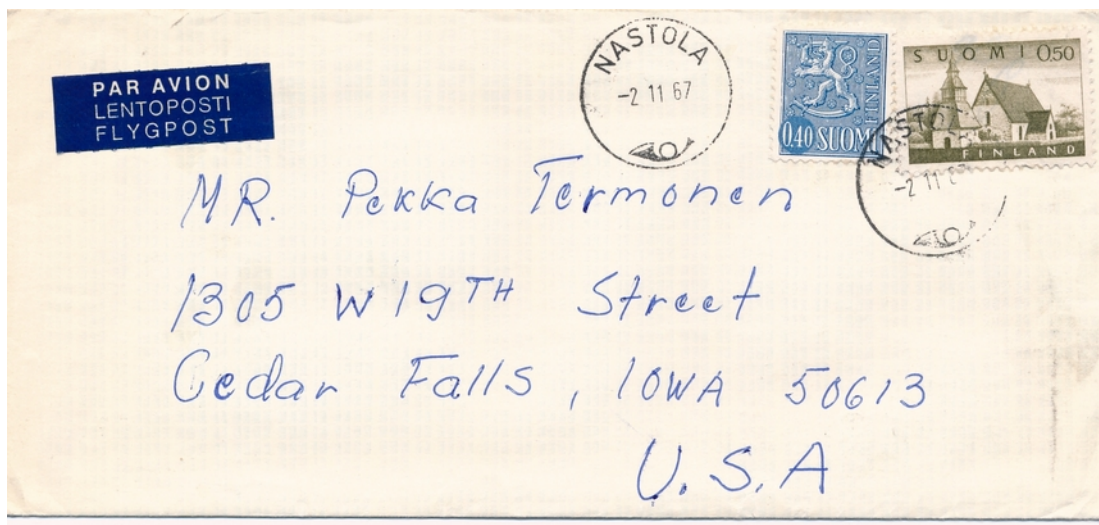 PAR AVION
LENTOPOSTI
FLYGPOST
NASTOLA
-2 11 67
0,40 SUOMI
FINLAND
SUOMI 0,50
FINLAND
NASTO
-2 11
MR. Pekka Termonen
1305 W 19TH Street
Cedar Falls, IOWA 50613
U.S.A